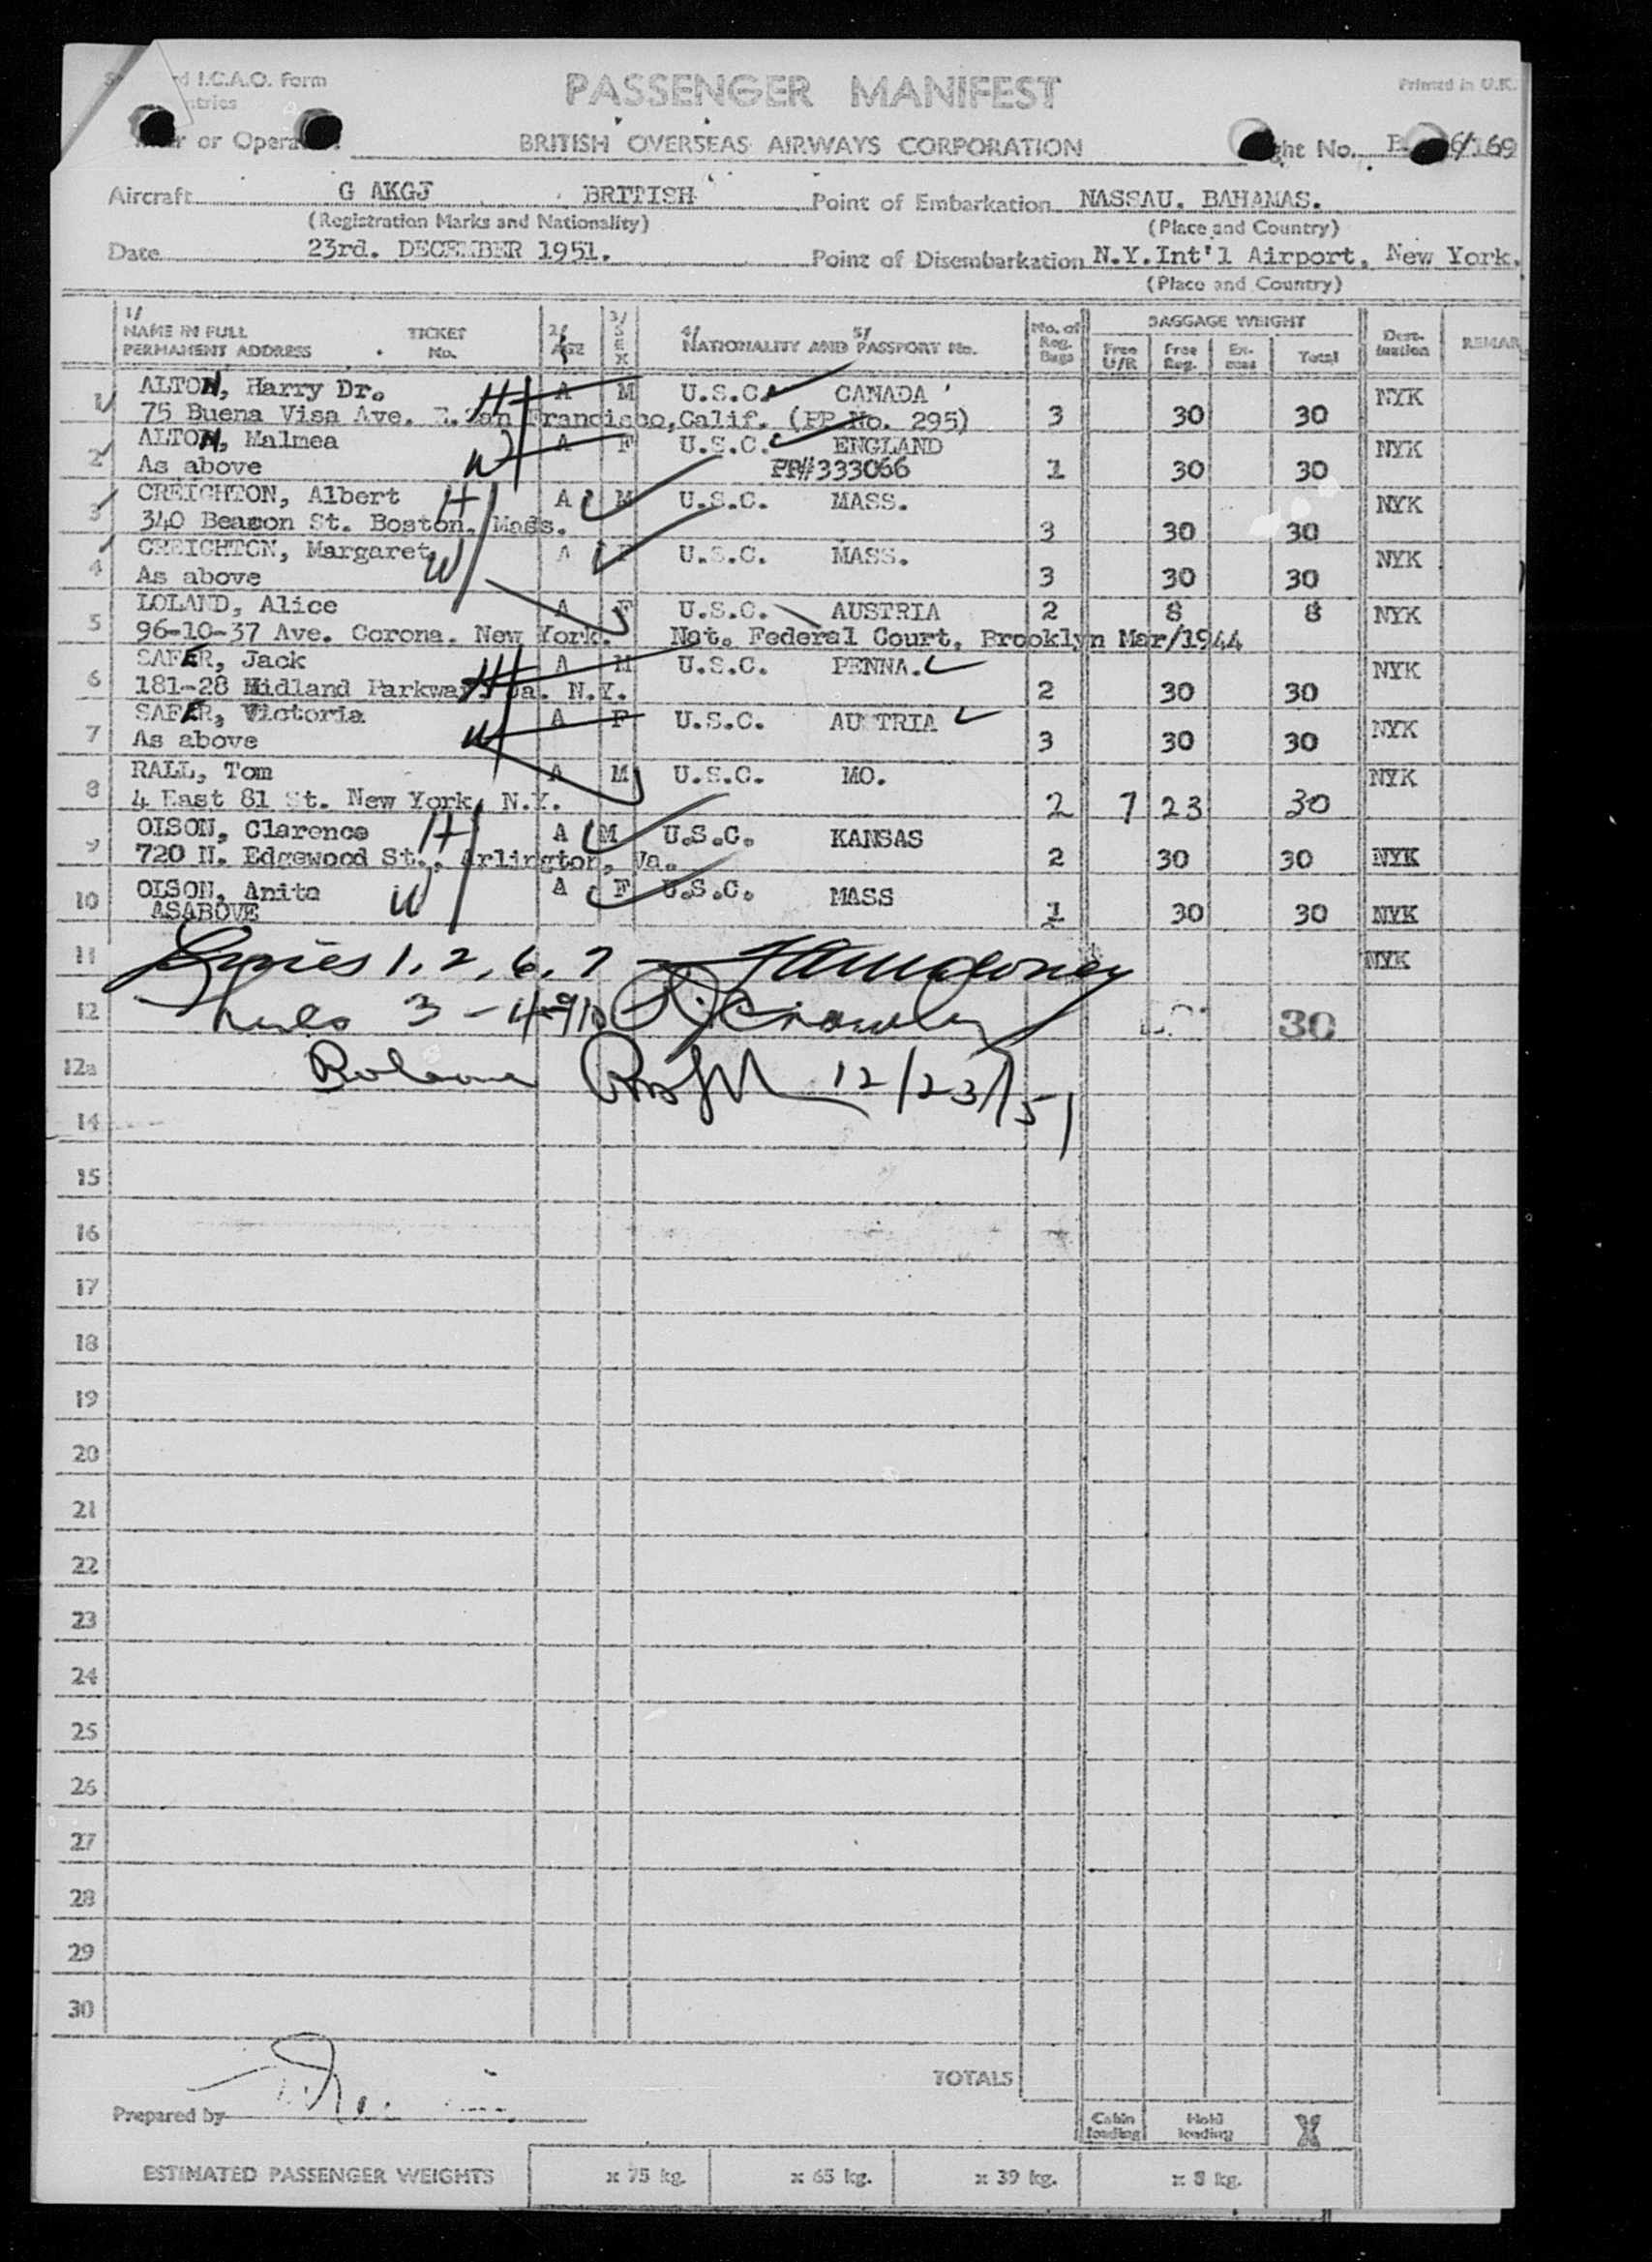 I.C.A.O. Form
PASSENGER MANIFEST
Printed in U.K.
or
BRITISH OVERSEAS AIRWAYS CORPORATION
No. 6/169
Aircraft G AKGJ BRITISH
Point of Embarkation NASSAU. BAHAMAS.
(Registration Marks and Nationality)
(Place and Country)
Date 23rd. DECEMBER 1951.
Point of Disembarkation N.Y.Int'l Airport, New York.
(Place and Country)
1/ NAME IN FULL PERMANENT ADDRESS TICKET No. 2/ AGE 3/ SEX 4/ 5/ NATIONALITY AND PASSPORT No. No. of Reg. Bags BAGGAGE WEIGHT Free U/R Free Reg. Ex-cess Total Dest-ination REMAR
1 ALTON, Harry Dr. H A M U.S.C. CANADA NYK
75 Buena Visa Ave. E.San Francisco,Calif. (PP No. 295) 3 30 30
2 ALTON, Malmea W A F U.S.C. ENGLAND NYK
As above PP#333066 1 30 30
3 CREIGHTON, Albert H A M U.S.C. MASS. NYK
340 Beacon St. Boston. Mass. 3 30 30
4 CREIGHTON, Margaret W A F U.S.C. MASS. NYK
As above 3 30 30
5 LOLAND, Alice A F U.S.C. AUSTRIA 2 8 8 NYK
96-10-37 Ave. Corona. New York. Nat. Federal Court, Brooklyn Mar/1944
6 SAFER, Jack H A M U.S.C. PENNA. NYK
181-28 Midland Parkway. Ja. N.Y. 2 30 30
7 SAFER, Victoria W A F U.S.C. AU TRIA NYK
As above 3 30 30
8 RALL, Tom A M U.S.C. MO. NYK
4 East 81 St. New York, N.Y. 2 7 23 30
9 OLSON, Clarence H A M U.S.C. KANSAS
720 N. Edgewood St., Arlington, Va. 2 30 30 NYK
10 OLSON, Anita W A F U.S.C. MASS
ASABOVE 1 30 30 NYK
11 Lines 1, 2, 6, 7 NYK
12 Lines 3-4-9/10 30
12a Balance 12/23/51
14
15
16
17
18
19
20
21
22
23
24
25
26
27
28
29
30
TOTALS
Prepared by
Cabin loading Hold loading X
ESTIMATED PASSENGER WEIGHTS x 75 kg. x 65 kg. x 39 kg. x 8 kg.